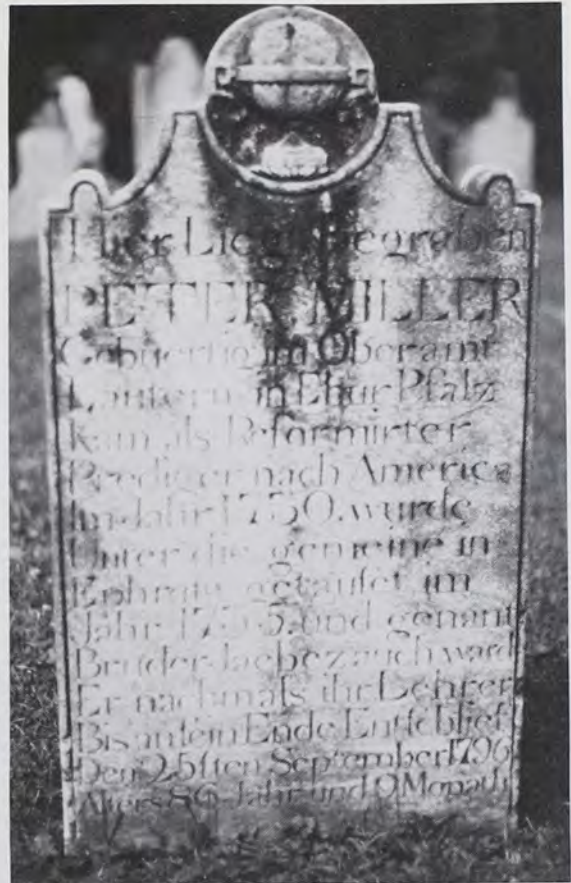 Hier Liegt Begraben
PETER MILLER
Gebuertig im Oberamt
Lautern in Chur Pfalz
Kam als Reformirter
Prediger nach America
Im Jahr 1730. wurde
Unter die gemeine in
Ephrata getaufet im
Jahr 1735. und genant
Bruder Jaebez auch ward
Er nachmals ihr Lehrer
Bis an sein Ende Entschlief
Den 25sten September 1796
Alters 86 Jahr und 9 Monath